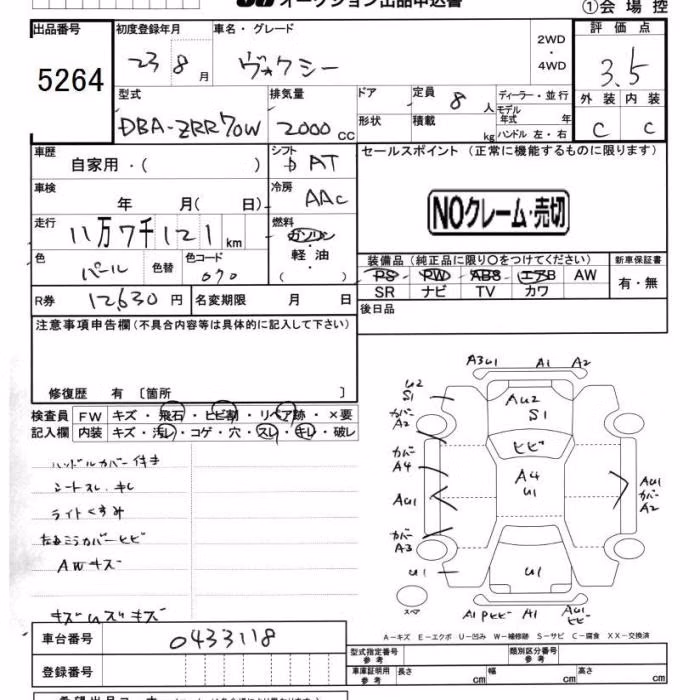 オークション出品申込書
①会場控
出品番号
5264
初度登録年月
23 8 月
車名・グレード
ヴォクシー
2WD
・
4WD
評価点
3.5
外装 内装
C C
型式
DBA-ZRR70W
排気量
2000 CC
ドア
形状
定員 8 人
積載 kg
ディーラー・並行
モデル年式 年
ハンドル 左・右
車歴
自家用・( )
シフト
AT
セールスポイント (正常に機能するものに限ります)
NOクレーム・売切
車検
年 月( 日)
冷房
AAC
走行
11万7千121 km
燃料
ガソリン
・
軽油
( )
色
パール
色替
色コード
070
装備品 (純正品に限り〇をつけてください)
PS PW ABS エアB AW
SR ナビ TV カワ
新車保証書
有・無
R券 12,630 円
名変期限 月 日
後日品
注意事項申告欄(不具合内容等は具体的に記入して下さい)
修復歴 有 〔箇所 〕
検査員
記入欄
FW キズ・飛石・ヒビ割・リペア跡・×要
内装 キズ・汚レ・コゲ・穴・スレ・キレ・破レ
ハンドルカバー付き
シートスレ、キレ
ライトくすみ
左右ミラカバーヒビ
AWキズ
A3U1 A1 A2
U2
S1
AU2
S1
カバー
A2
ヒビ
カバー
A4
A4
U1
AU1
AU1
カバー
A2
カバー
A3
U1
U1
スペア
A1PヒビA1
AU1
ヒビ
A-キズ E-エクボ U-凹み W-補修跡 S-サビ C-腐食 XX-交換済
車台番号
0433118
登録番号
型式指定番号
参考
類別区分番号
参考
車庫証明用
参考
長さ cm 幅 cm 高さ cm